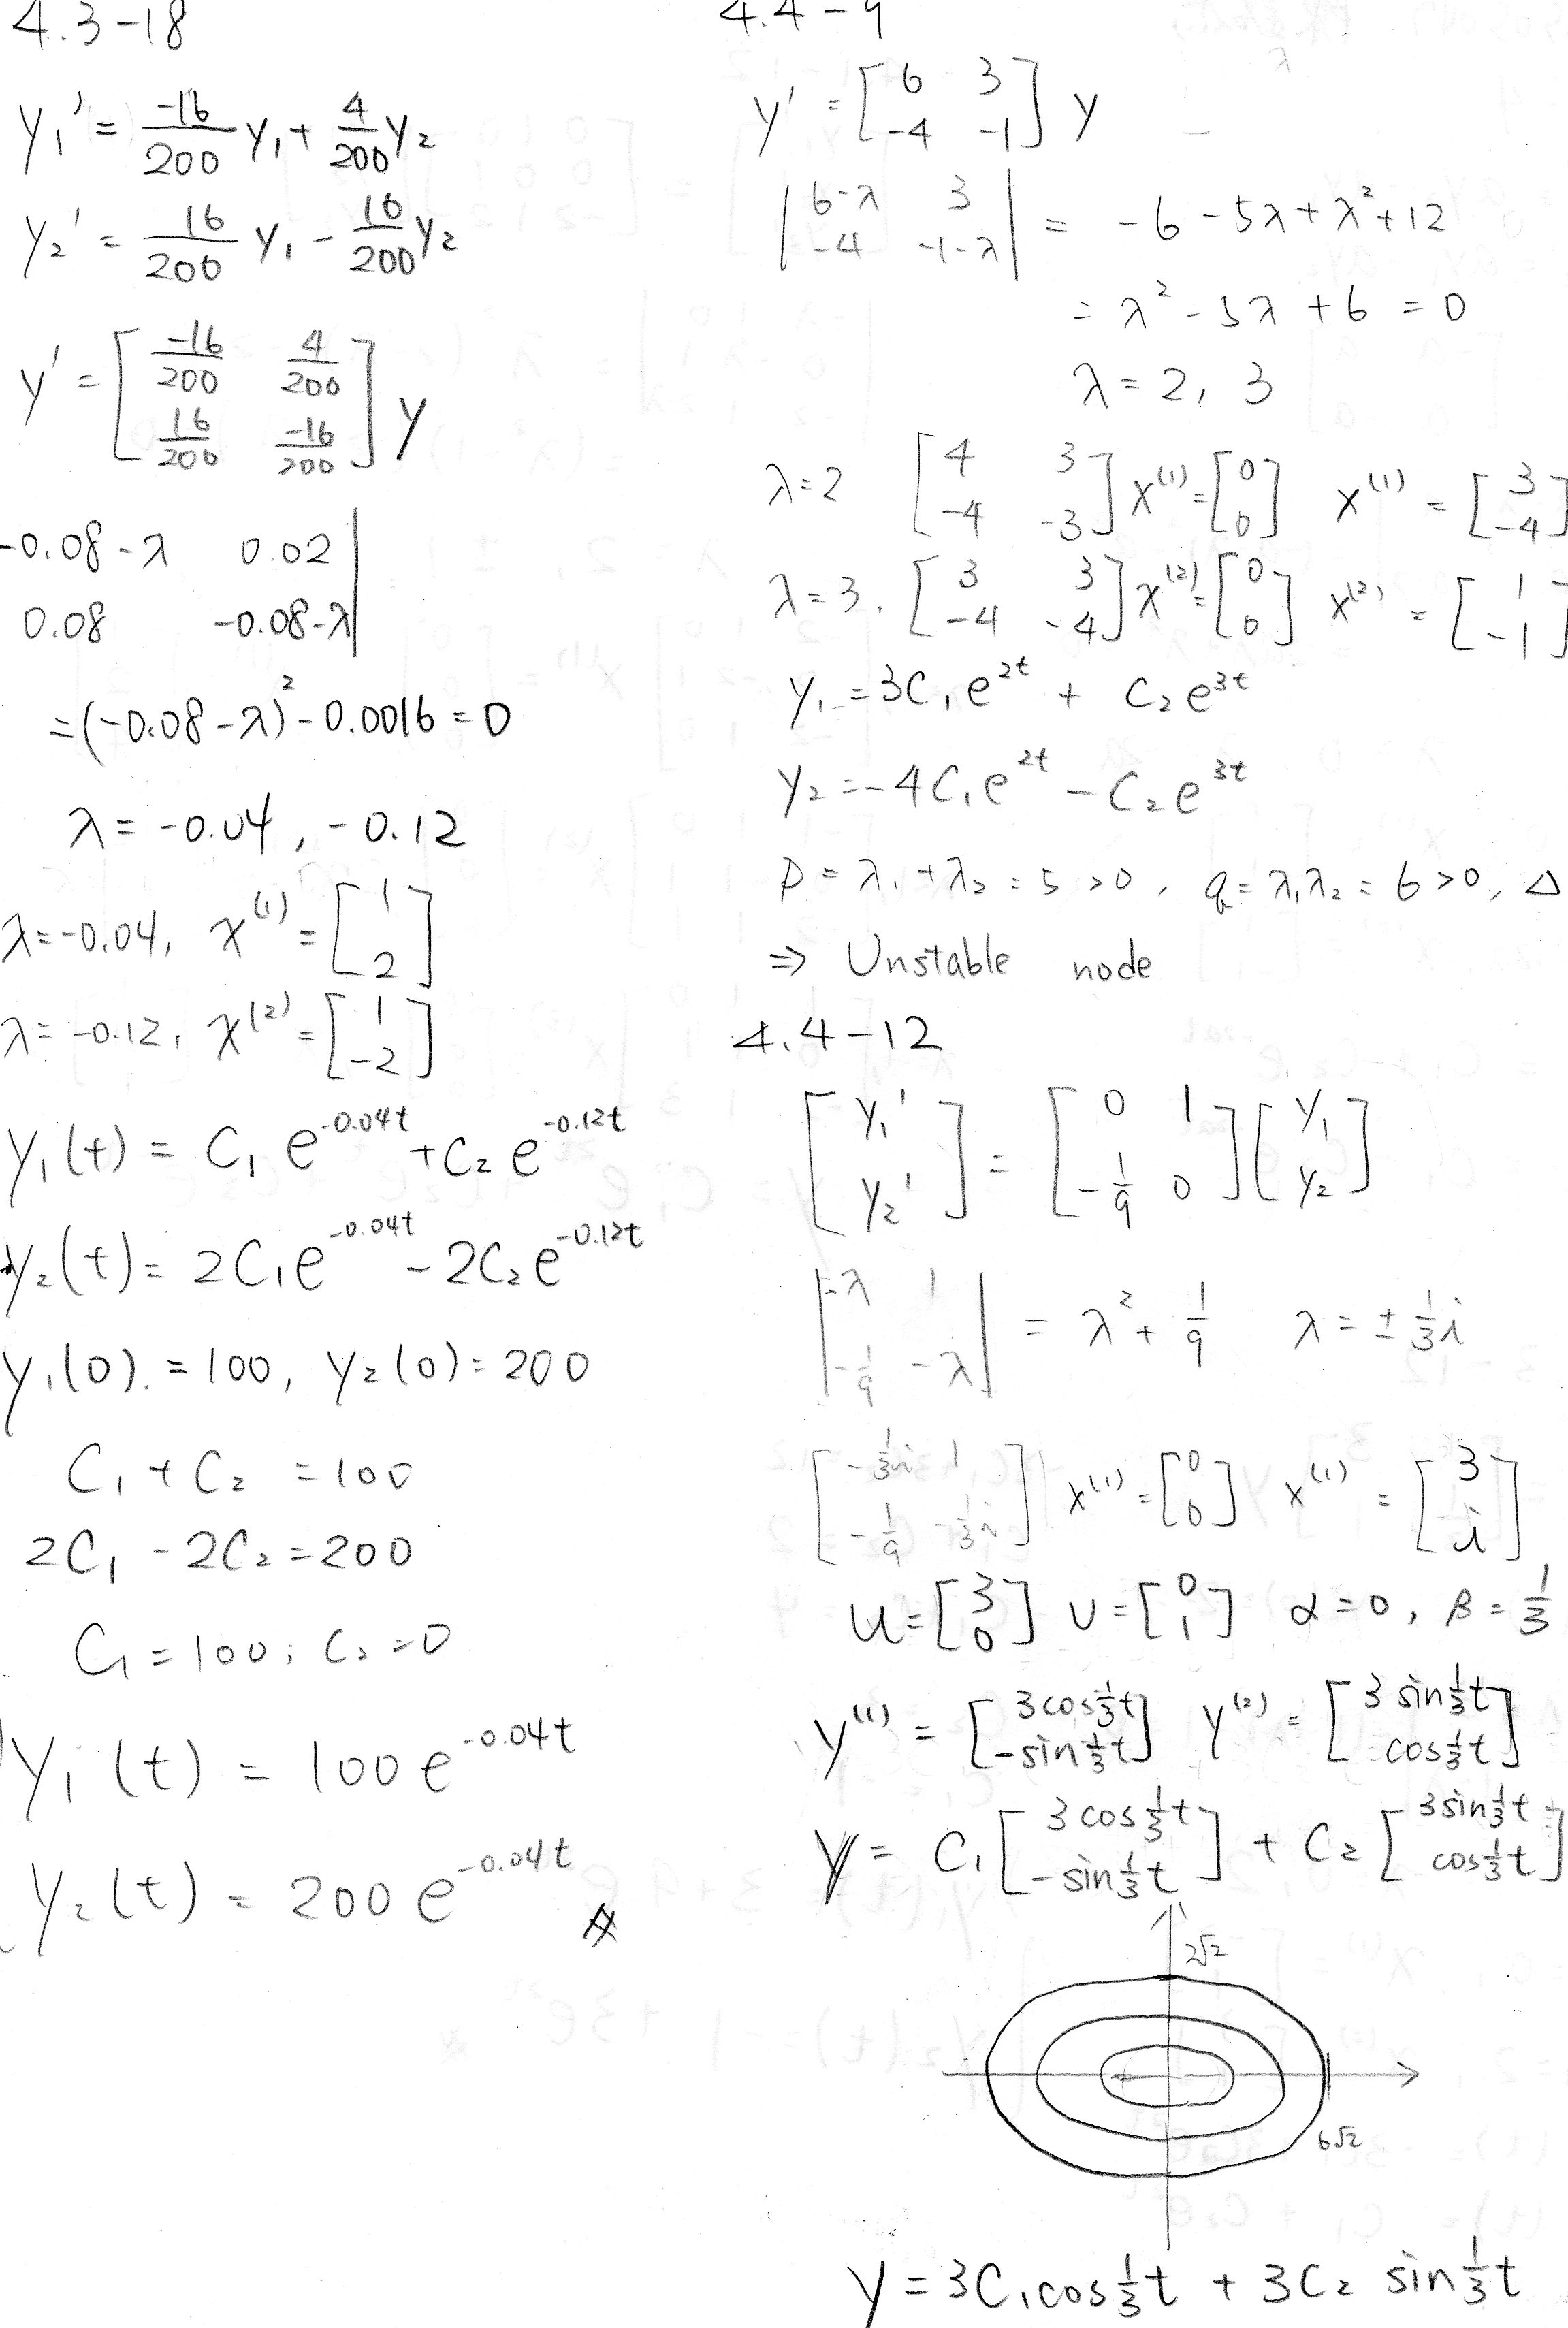 4.3-18
y₁' = -16/200 y₁ + 4/200 y₂
y₂' = 16/200 y₁ - 16/200 y₂
y' = [-16/200 4/200
16/200 -16/200] y
-0.08-λ 0.02 |
0.08 -0.08-λ |
= (-0.08-λ)² - 0.0016 = 0
λ = -0.04, -0.12
λ = -0.04, x⁽¹⁾ = [1
2]
λ = -0.12, x⁽²⁾ = [1
-2]
y₁(t) = C₁ e^-0.04t + C₂ e^-0.12t
y₂(t) = 2C₁e^-0.04t - 2C₂e^-0.12t
y₁(0) = 100, y₂(0) = 200
C₁ + C₂ = 100
2C₁ - 2C₂ = 200
C₁ = 100; C₂ = 0
y₁(t) = 100 e^-0.04t
y₂(t) = 200 e^-0.04t #
4.4-9
y' = [6 3
-4 -1] y
| 6-λ 3
-4 -1-λ | = -6 - 5λ + λ² + 12
= λ² - 5λ + 6 = 0
λ = 2, 3
λ = 2 [4 3
-4 -3] x⁽¹⁾ = [0
0] x⁽¹⁾ = [3
-4]
λ = 3. [3 3
-4 -4] x⁽²⁾ = [0
0] x⁽²⁾ = [1
-1]
y₁ = 3C₁e^2t + C₂e^3t
y₂ = -4C₁e^2t - C₂e^3t
p = λ₁ + λ₂ = 5 > 0, q = λ₁λ₂ = 6 > 0, Δ
⇒ Unstable node
4.4-12
[y₁'
y₂'] = [0 1
-1/9 0] [y₁
y₂]
| -λ 1
-1/9 -λ | = λ² + 1/9 λ = ± 1/3 i
[-1/3 i 1
-1/9 -1/3 i] x⁽¹⁾ = [0
0] x⁽¹⁾ = [3
i]
u = [3
0] v = [0
1] α = 0, β = 1/3
y⁽¹⁾ = [3cos 1/3 t
-sin 1/3 t] y⁽²⁾ = [3 sin 1/3 t
cos 1/3 t]
y = C₁ [3 cos 1/3 t
-sin 1/3 t] + C₂ [3 sin 1/3 t
cos 1/3 t]
2√2
6√2
y = 3C₁cos 1/3 t + 3C₂ sin 1/3 t